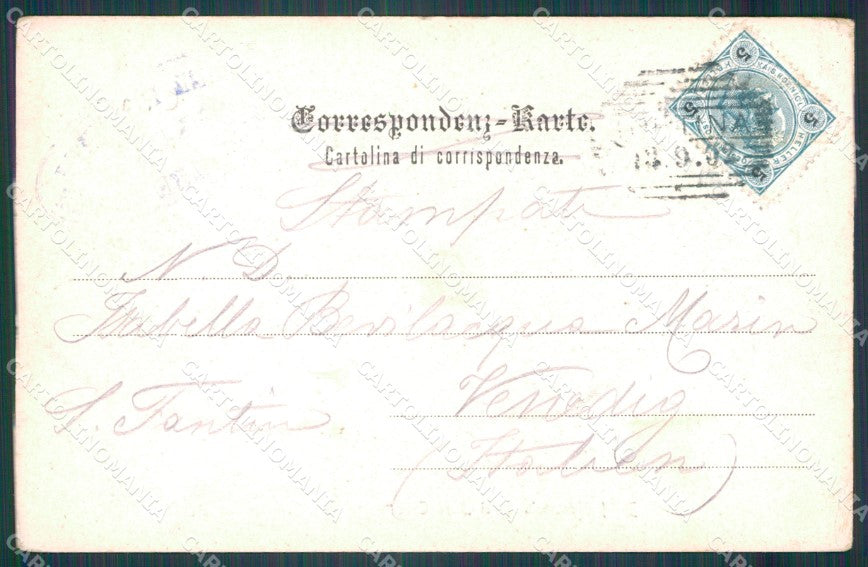 Correspondenz-Karte.
Cartolina di corrispondenza.
Stampate
N. D.
Isabella Bevilacqua Marin
S. Fantin
Venedig
(Italien)
5
5
5
5
HELLER
NA
9.0
CARTOLINOMANIA